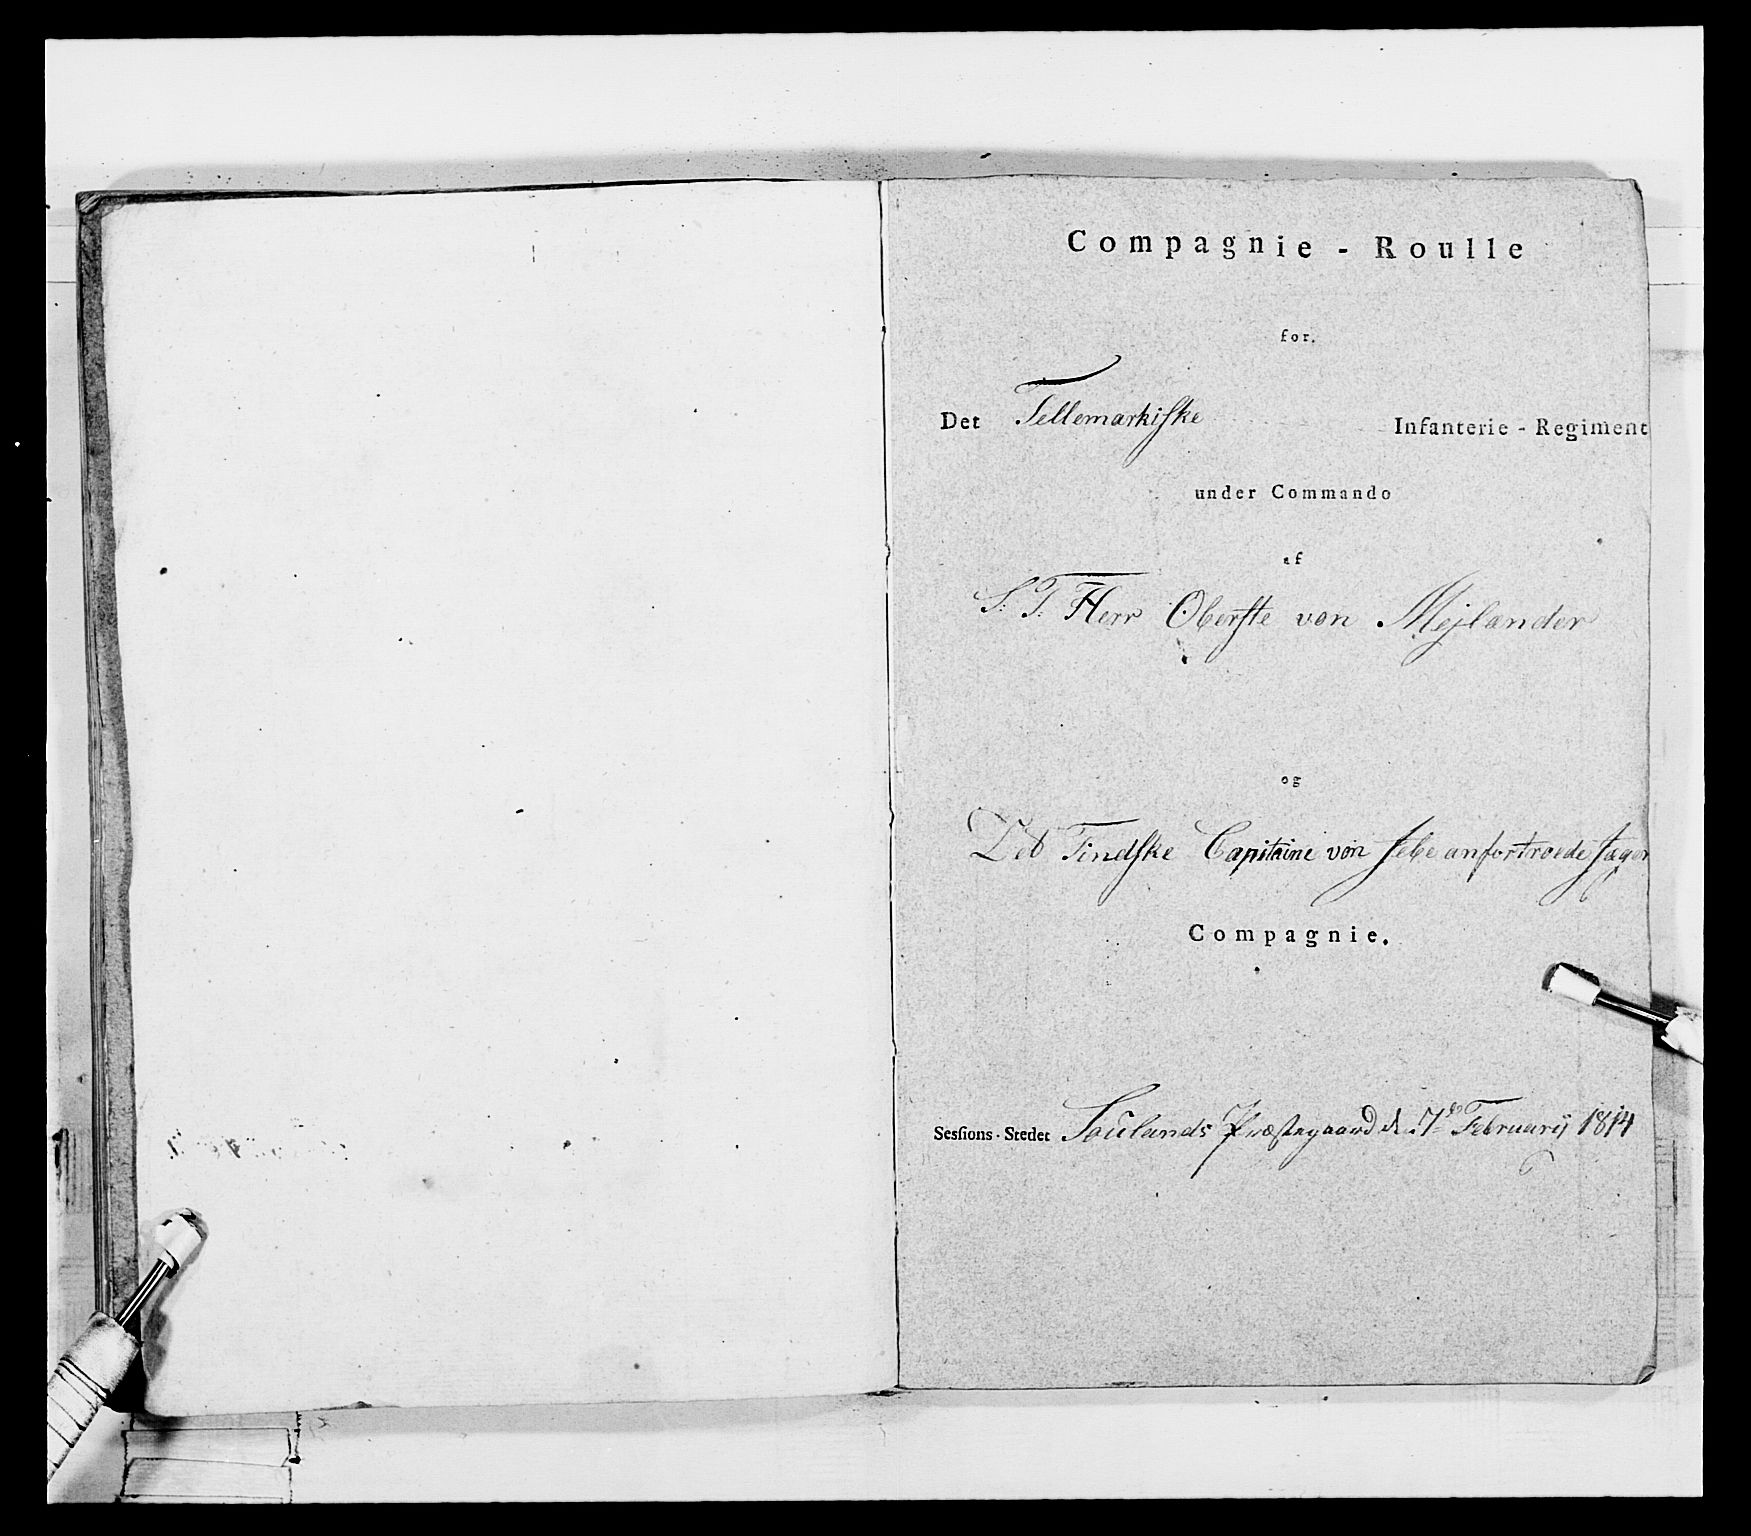 Compagnie - Roulle
for.
Det Tellemarkiske Infanterie - Regiment
under Commando
af
S. T. Herr Oberste von Mejlander
og
Det Tindske Capitaine von anfortroede Jæger
Compagnie.
Sessions-Stedet Soulands Præstegaard d. 7de Februarij 1814